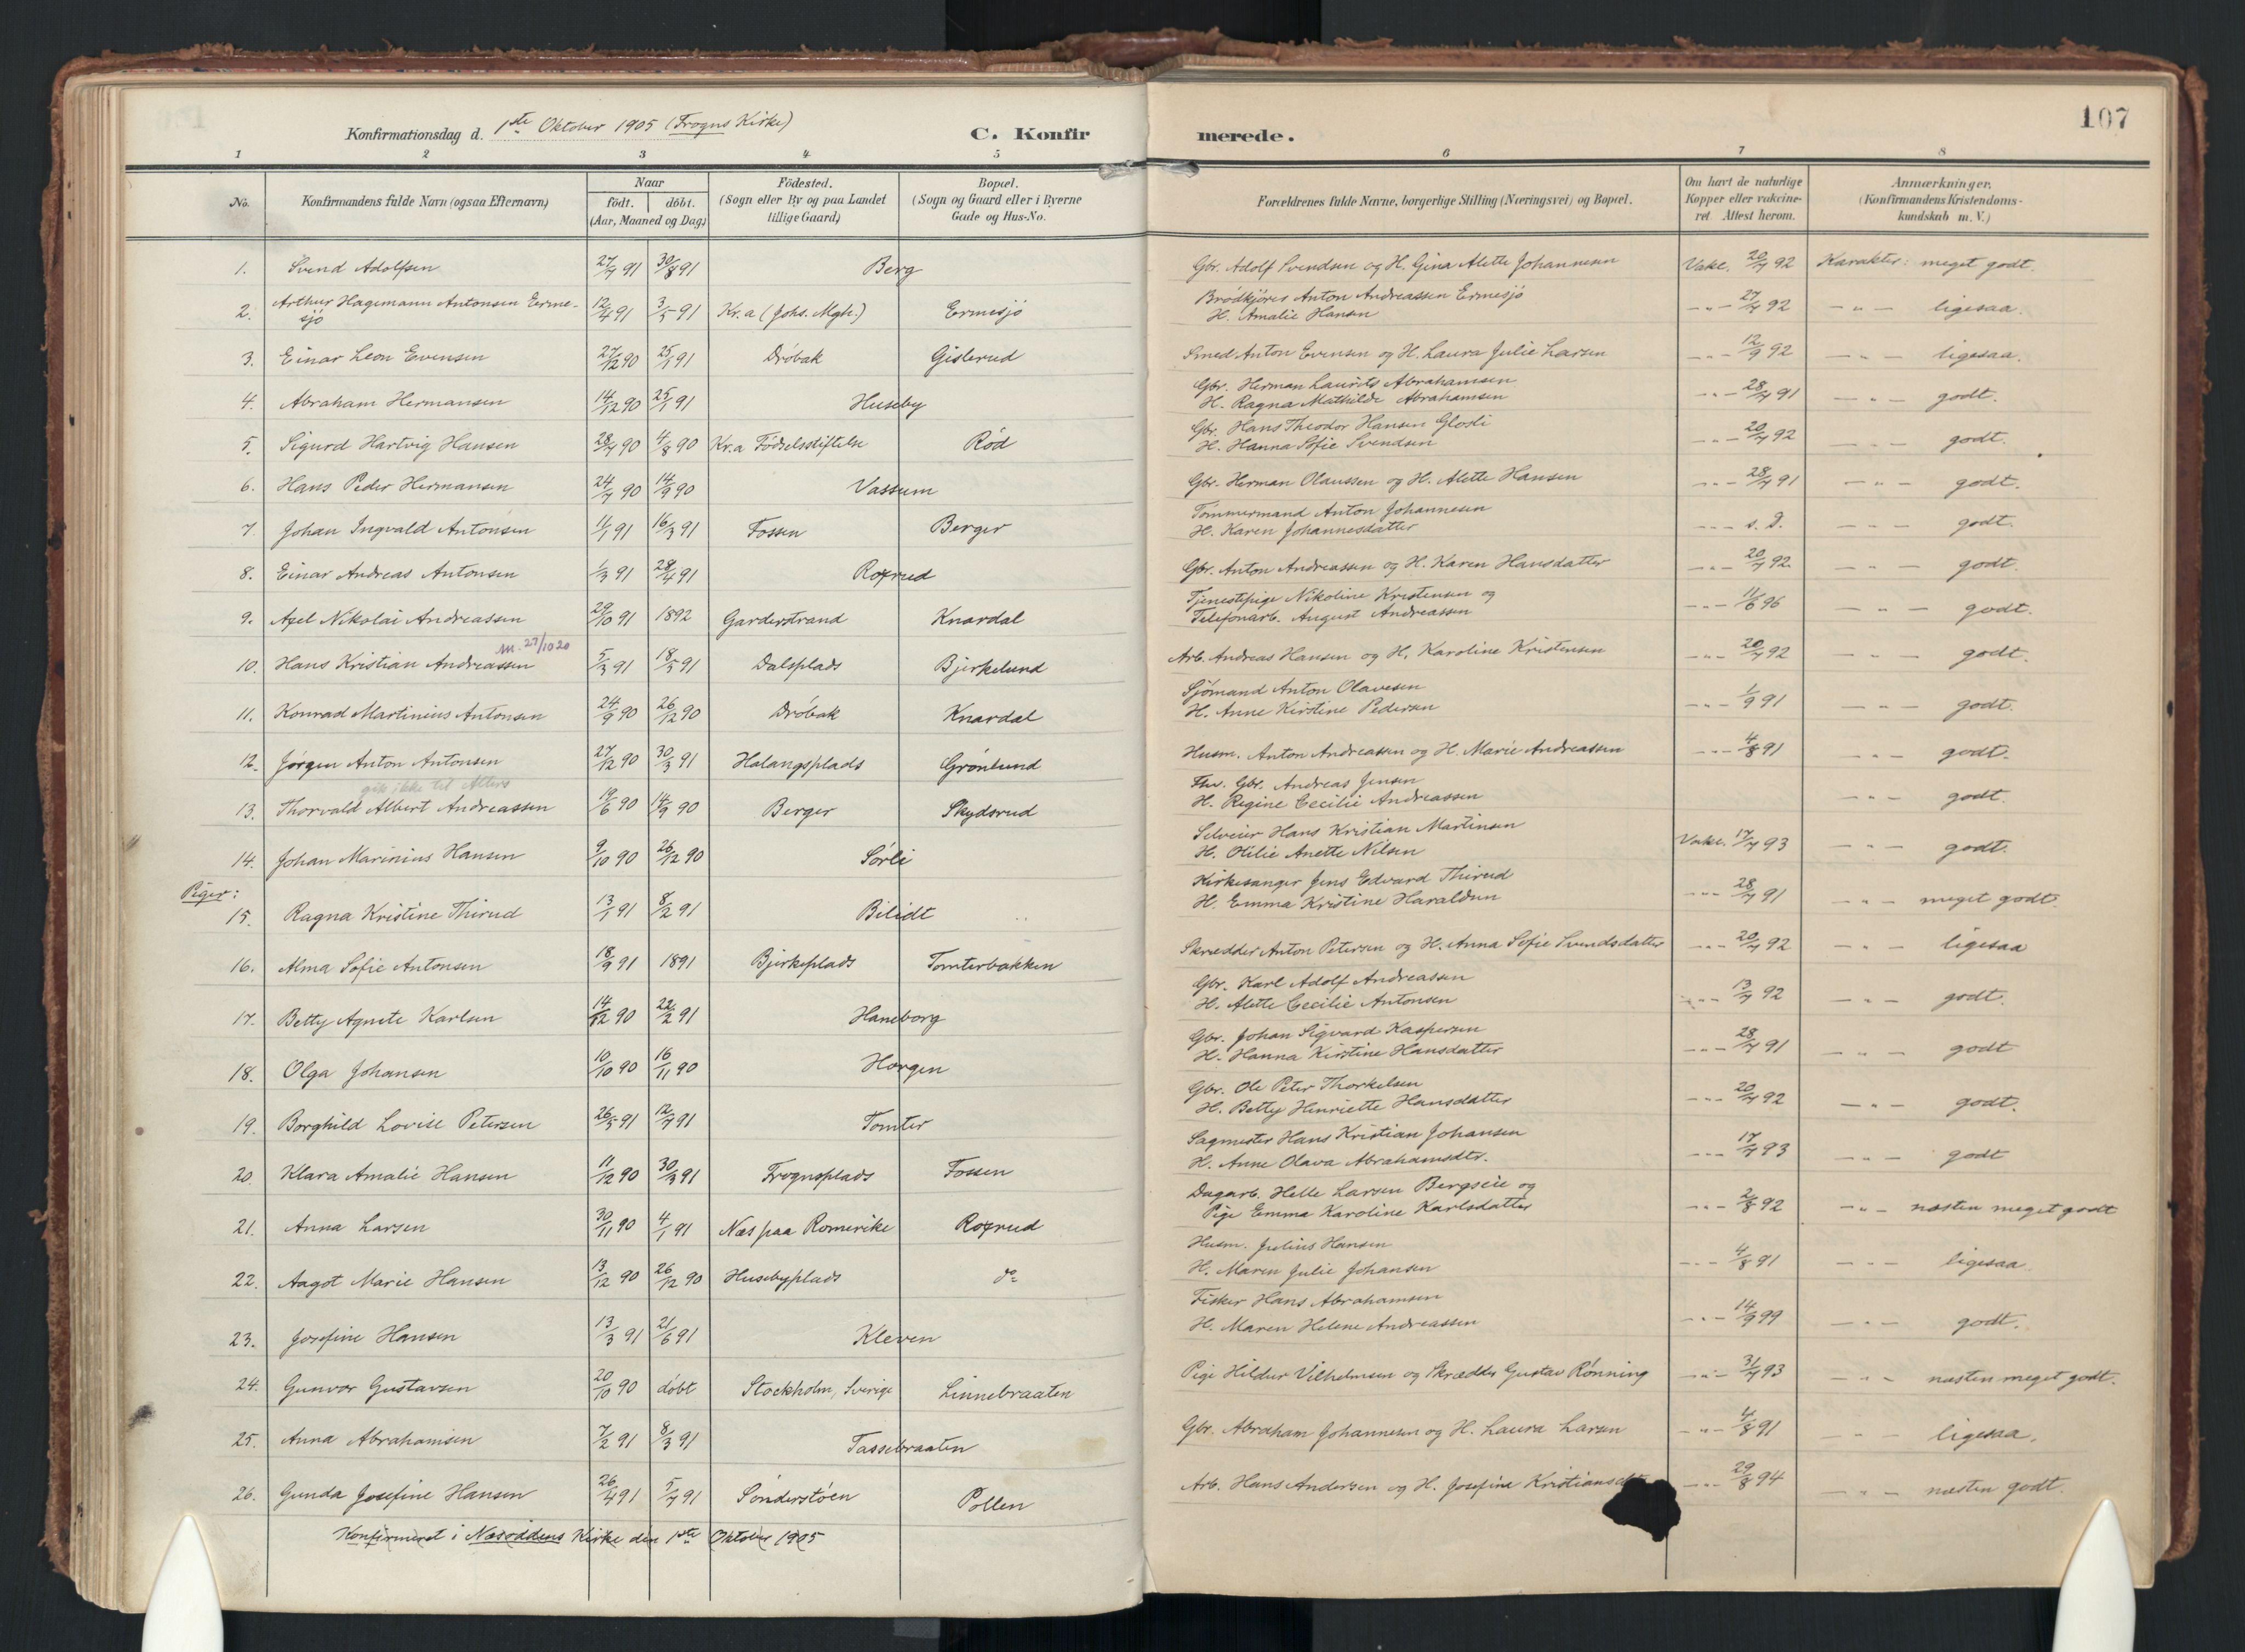 107
Konfirmationsdag d. 1ste Oktober 1905 (Frogns Kirke) C. Konfirmerede.
1 2 3 4 5 6 7 8
No. Konfirmandens fulde Navn (ogsaa Efternavn) Naar födt. döbt. (Aar, Maaned og Dag) Födested. (Sogn eller By og paa Landet tillige Gaard) Bopæl. (Sogn og Gaard eller i Byerne Gade og Hus-No. Forældrenes fulde Navne, borgerlige Stilling (Næringsvei) og Bopæl. Om havt de naturlige Kopper eller vakcineret. Attest herom. Anmærkninger, (Konfirmandens Kristendomskundskab m. V.)
1. Svend Adolfsen 27/7 91 30/8 91 Berg Gbr. Adolf Svendsen og H. Gina Alette Johannesen Vakc. 20/7 92 Karakter: meget godt.
2. Arthur Hagemann Antonsen Ermesjö 12/4 91 3/5 91 Kr.a (Johs. Mgh.) Ermesjö Brödkjörer Anton Andreassen Ermesjö H. Amalie Hansen -"- 27/7 92 -"- ligesaa.
3. Einar Leon Evensen 27/12 90 25/1 91 Dröbak Gislerud Smed Anton Evensen og H. Laura Julie Larsen -"- 12/9 92 -"- ligesaa.
4. Abraham Hermansen 14/12 90 25/1 91 Huseby Gbr. Herman Laurits Abrahamsen H. Ragna Mathilde Abrahamsen -"- 28/7 91 -"- godt.
5. Sigurd Hartvig Hansen 28/7 90 4/8 90 Kr.a Födselsstiftelse Röd Gbr. Hans Theodor Hansen Glosli H. Hanna Sofie Svendsen -"- 20/7 92 -"- godt.
6. Hans Peder Hermansen 24/7 90 14/9 90 Vassum Gbr. Herman Olaussen og H. Alette Hansen -"- 28/7 91 -"- godt.
7. Johan Ingvald Antonsen 11/1 91 16/3 91 Fossen Berger Tömmermand Anton Johannesen H. Karen Johannesdatter -"- s. D. -"- godt.
8. Einar Andreas Antonsen 1/3 91 28/4 91 Roxrud Gbr. Anton Andreassen og H. Karen Hansdatter -"- 20/7 92. -"- godt.
9. Axel Nikolai Andreassen 29/10 91 1892 Garderstrand Knardal Tjenestepige Nikoline Kristensen og Telefonarb. August Andreassen -"- 11/6 96 -"- godt.
m. 27/10 20
10. Hans Kristian Andreassen 5/3 91 18/5 91 Dalsplads Bjerkelund Arb. Andreas Hansen og H. Karoline Kristensen -"- 20/7 92 -"- godt.
11. Konrad Martinius Antonsen 24/9 90 26/12 90 Dröbak Knardal Sjömand Anton Olavesen H. Anne Kirstine Pedersen -"- 1/9 91 -"- godt.
12. Jörgen Anton Antonsen 27/12 90 30/3 91 Halangsplads Grönlund Husm. Anton Andreassen og H. Marie Andreassen -"- 4/8 91 -"- godt.
gik ikke til Alters
13. Thorvald Albert Andreassen 19/6 90 14/9 90 Berger Skydsrud Fhv. Gbr. Andreas Jensen H. Regine Cecilie Andreassen -"- godt.
14. Johan Marinius Hansen 9/10 90 26/12 90 Sörli Selveier Hans Kristian Martinsen H. Otilie Anette Nilsen Vakc. 17/7 93 -"- godt.
Piger:
15. Ragna Kristine Thirud 13/1 91 8/2 91 Bilidt Kirkesanger Jens Edvard Thirud H. Emma Kristine Haraldsen -"- 28/7 91 -"- meget godt.
16. Alma Sofie Antonsen 18/9 91 1891 Bjerkeplads Tomterbakken Skrædder Anton Petersen og H. Anna Sofie Svendsdatter -"- 20/7 92 -"- ligesaa
17. Betty Agnete Karlsen 14/12 90 22/2 91 Haneborg Gbr. Karl Adolf Andreassen H. Alette Cecilie Antonsen -"- 13/7 92 -"- godt.
18. Olga Johansen 10/10 90 16/11 90 Horgen Gbr. Johan Sigvard Kaspersen H. Hanna Kirstine Hansdatter -"- 28/7 91 -"- godt
19. Borghild Lovise Petersen 26/5 91 12/7 91 Tomter Gbr. Ole Peter Thorkelsen H. Betty Henriette Hansdatter -"- 20/7 92 -"- godt.
20. Klara Amalie Hansen 11/12 90 30/3 91 Frognsplads Fossen Sagmester Hans Kristian Johansen H. Anne Olava Abrahamsdtr. -"- 17/7 93 -"- godt
21. Anna Larsen 30/11 90 4/1 91 Næs paa Romerike Roxrud Dagarb. Helle Larsen Bergseie og Pige Emma Karoline Karlsdatter -"- 2/8 92 -"- næsten meget godt
22. Aagot Marie Hansen 13/12 90 26/12 90 Husebyplads do Husm. Julius Hansen H. Maren Julie Johansen -"- 4/8 91 -"- ligesaa
23. Josefine Hansen 13/3 91 21/6 91 Kleven Fisker Hans Abrahamsen H. Maren Helene Andreassen -"- 14/9 99 -"- godt.
24. Gunvor Gustavsen 20/10 90 döbt Stockholm, Sverige Linnebraaten Pige Hildur Vilhelmsen og Skrædder Gustav Rönning -"- 31/7 93 -"- næsten meget godt.
25. Anna Abrahamsen 7/2 91 8/3 91 Tassebraaten Gbr. Abraham Johannesen og H. Laura Larsen -"- 4/8 91 -"- ligesaa.
26. Gunda Josefine Hansen 26/4 91 5/7 91 Sönderstöen Pollen Arb. Hans Andersen og H. Josefine -"- 29/8 94 -"- næsten godt.
Konfirmeret i Næsoddens Kirke den 1ste Oktober 1905